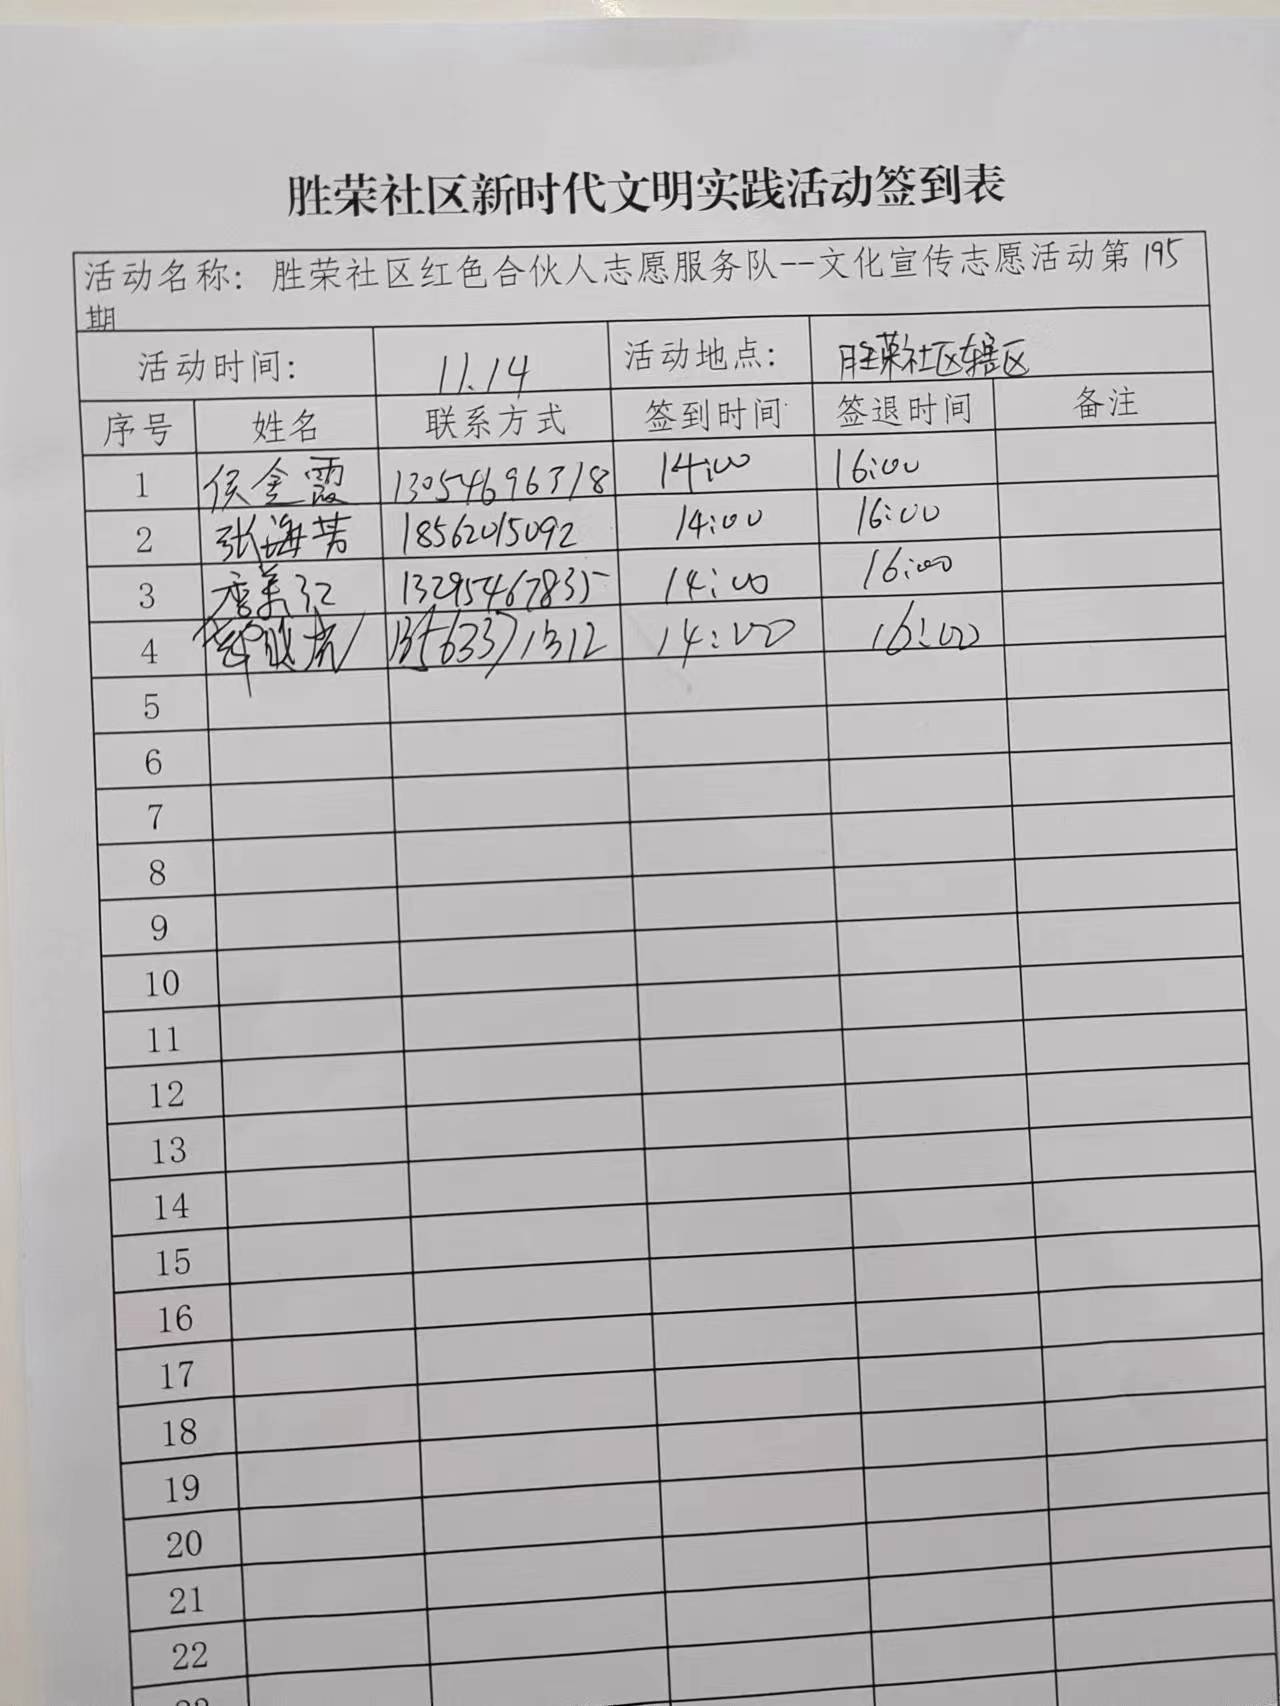 胜荣社区新时代文明实践活动签到表
活动名称：胜荣社区红色合伙人志愿服务队--文化宣传志愿活动第195
期
活动时间： 11.14 活动地点： 胜荣社区辖区
序号 姓名 联系方式 签到时间 签退时间 备注
1 侯金霞 13054696318 14:00 16:00
2 张海芳 18562015092 14:00 16:00
3 13295467835 14:00 16:00
4 13563371312 14:00 16:00
5
6
7
8
9
10
11
12
13
14
15
16
17
18
19
20
21
22
23